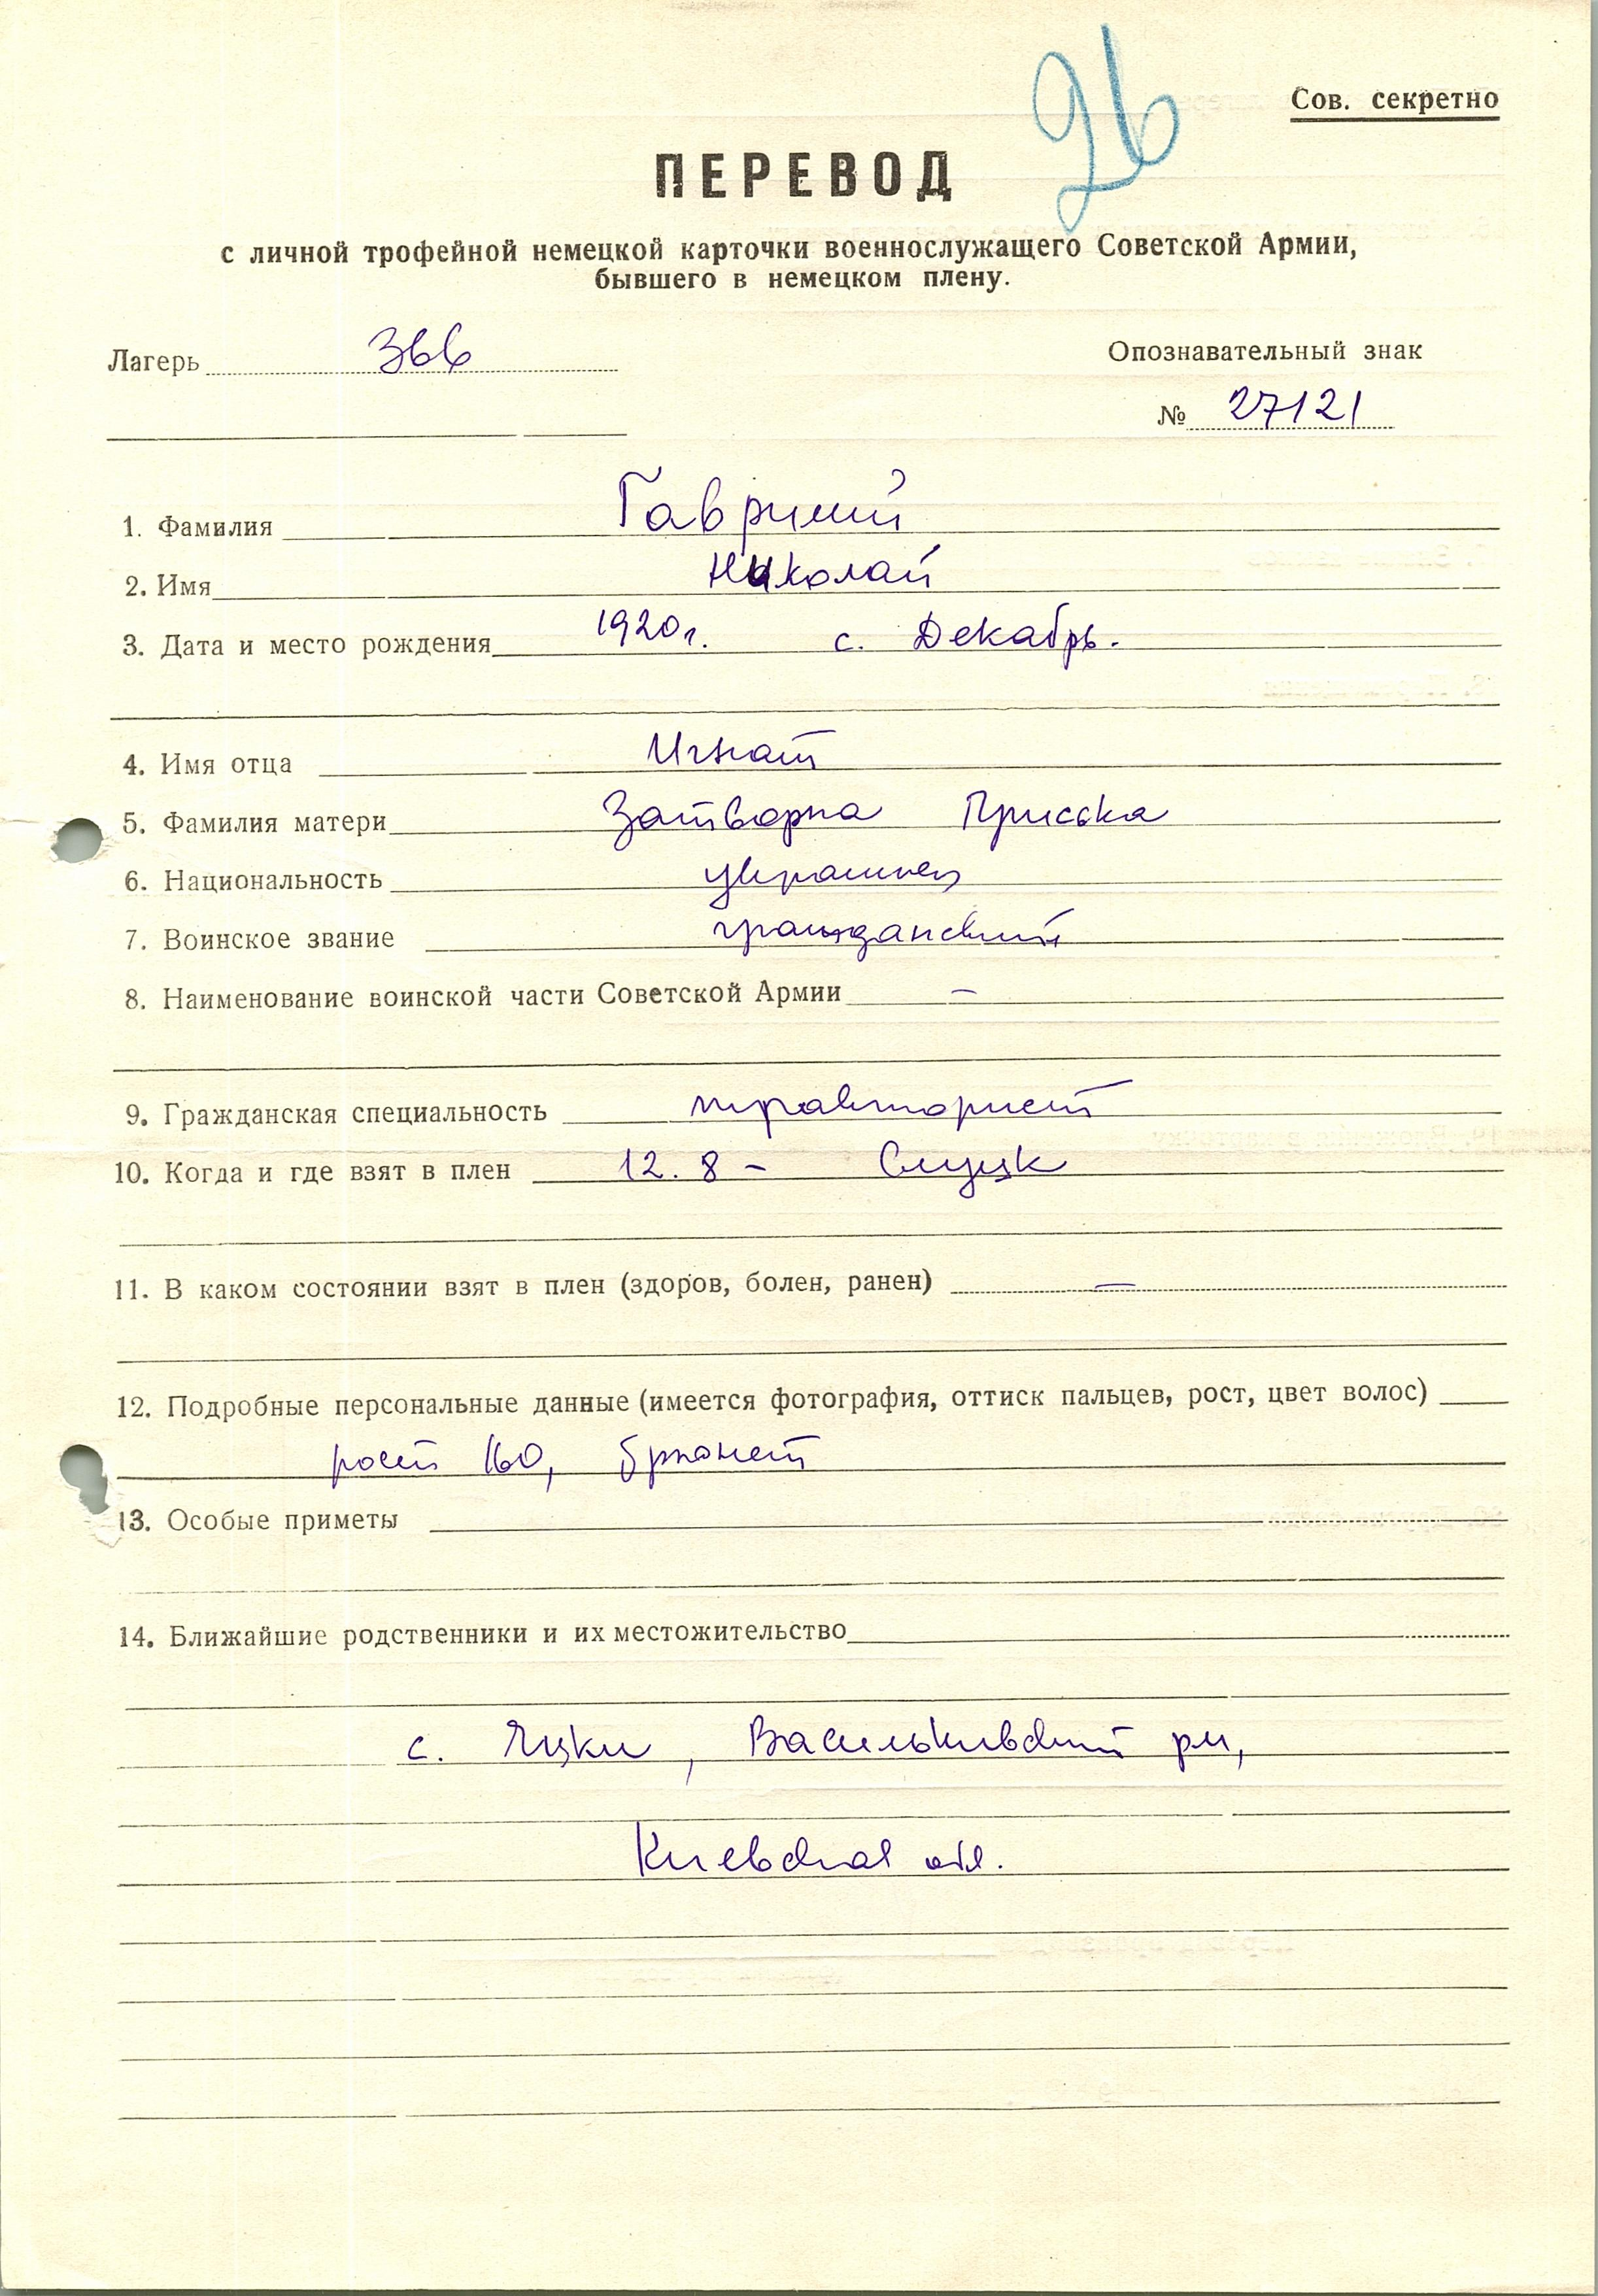 26
Сов. секретно
ПЕРЕВОД
с личной трофейной немецкой карточки военнослужащего Советской Армии,
бывшего в немецком плену.
Лагерь 366
Опознавательный знак
№ 27121
1. Фамилия
2. Имя Николай
3. Дата и место рождения 1920г. с. Декабрь.
4. Имя отца Игнат
5. Фамилия матери Приська
6. Национальность украинец
7. Воинское звание гражданский
8. Наименование воинской части Советской Армии –
9. Гражданская специальность тракторист
10. Когда и где взят в плен 12. 8 – Слуцк
11. В каком состоянии взят в плен (здоров, болен, ранен) —
12. Подробные персональные данные (имеется фотография, оттиск пальцев, рост, цвет волос)
рост 160, брюнет
13. Особые приметы
14. Ближайшие родственники и их местожительство
с. Яцки, Васильковский рн,
Киевская обл.